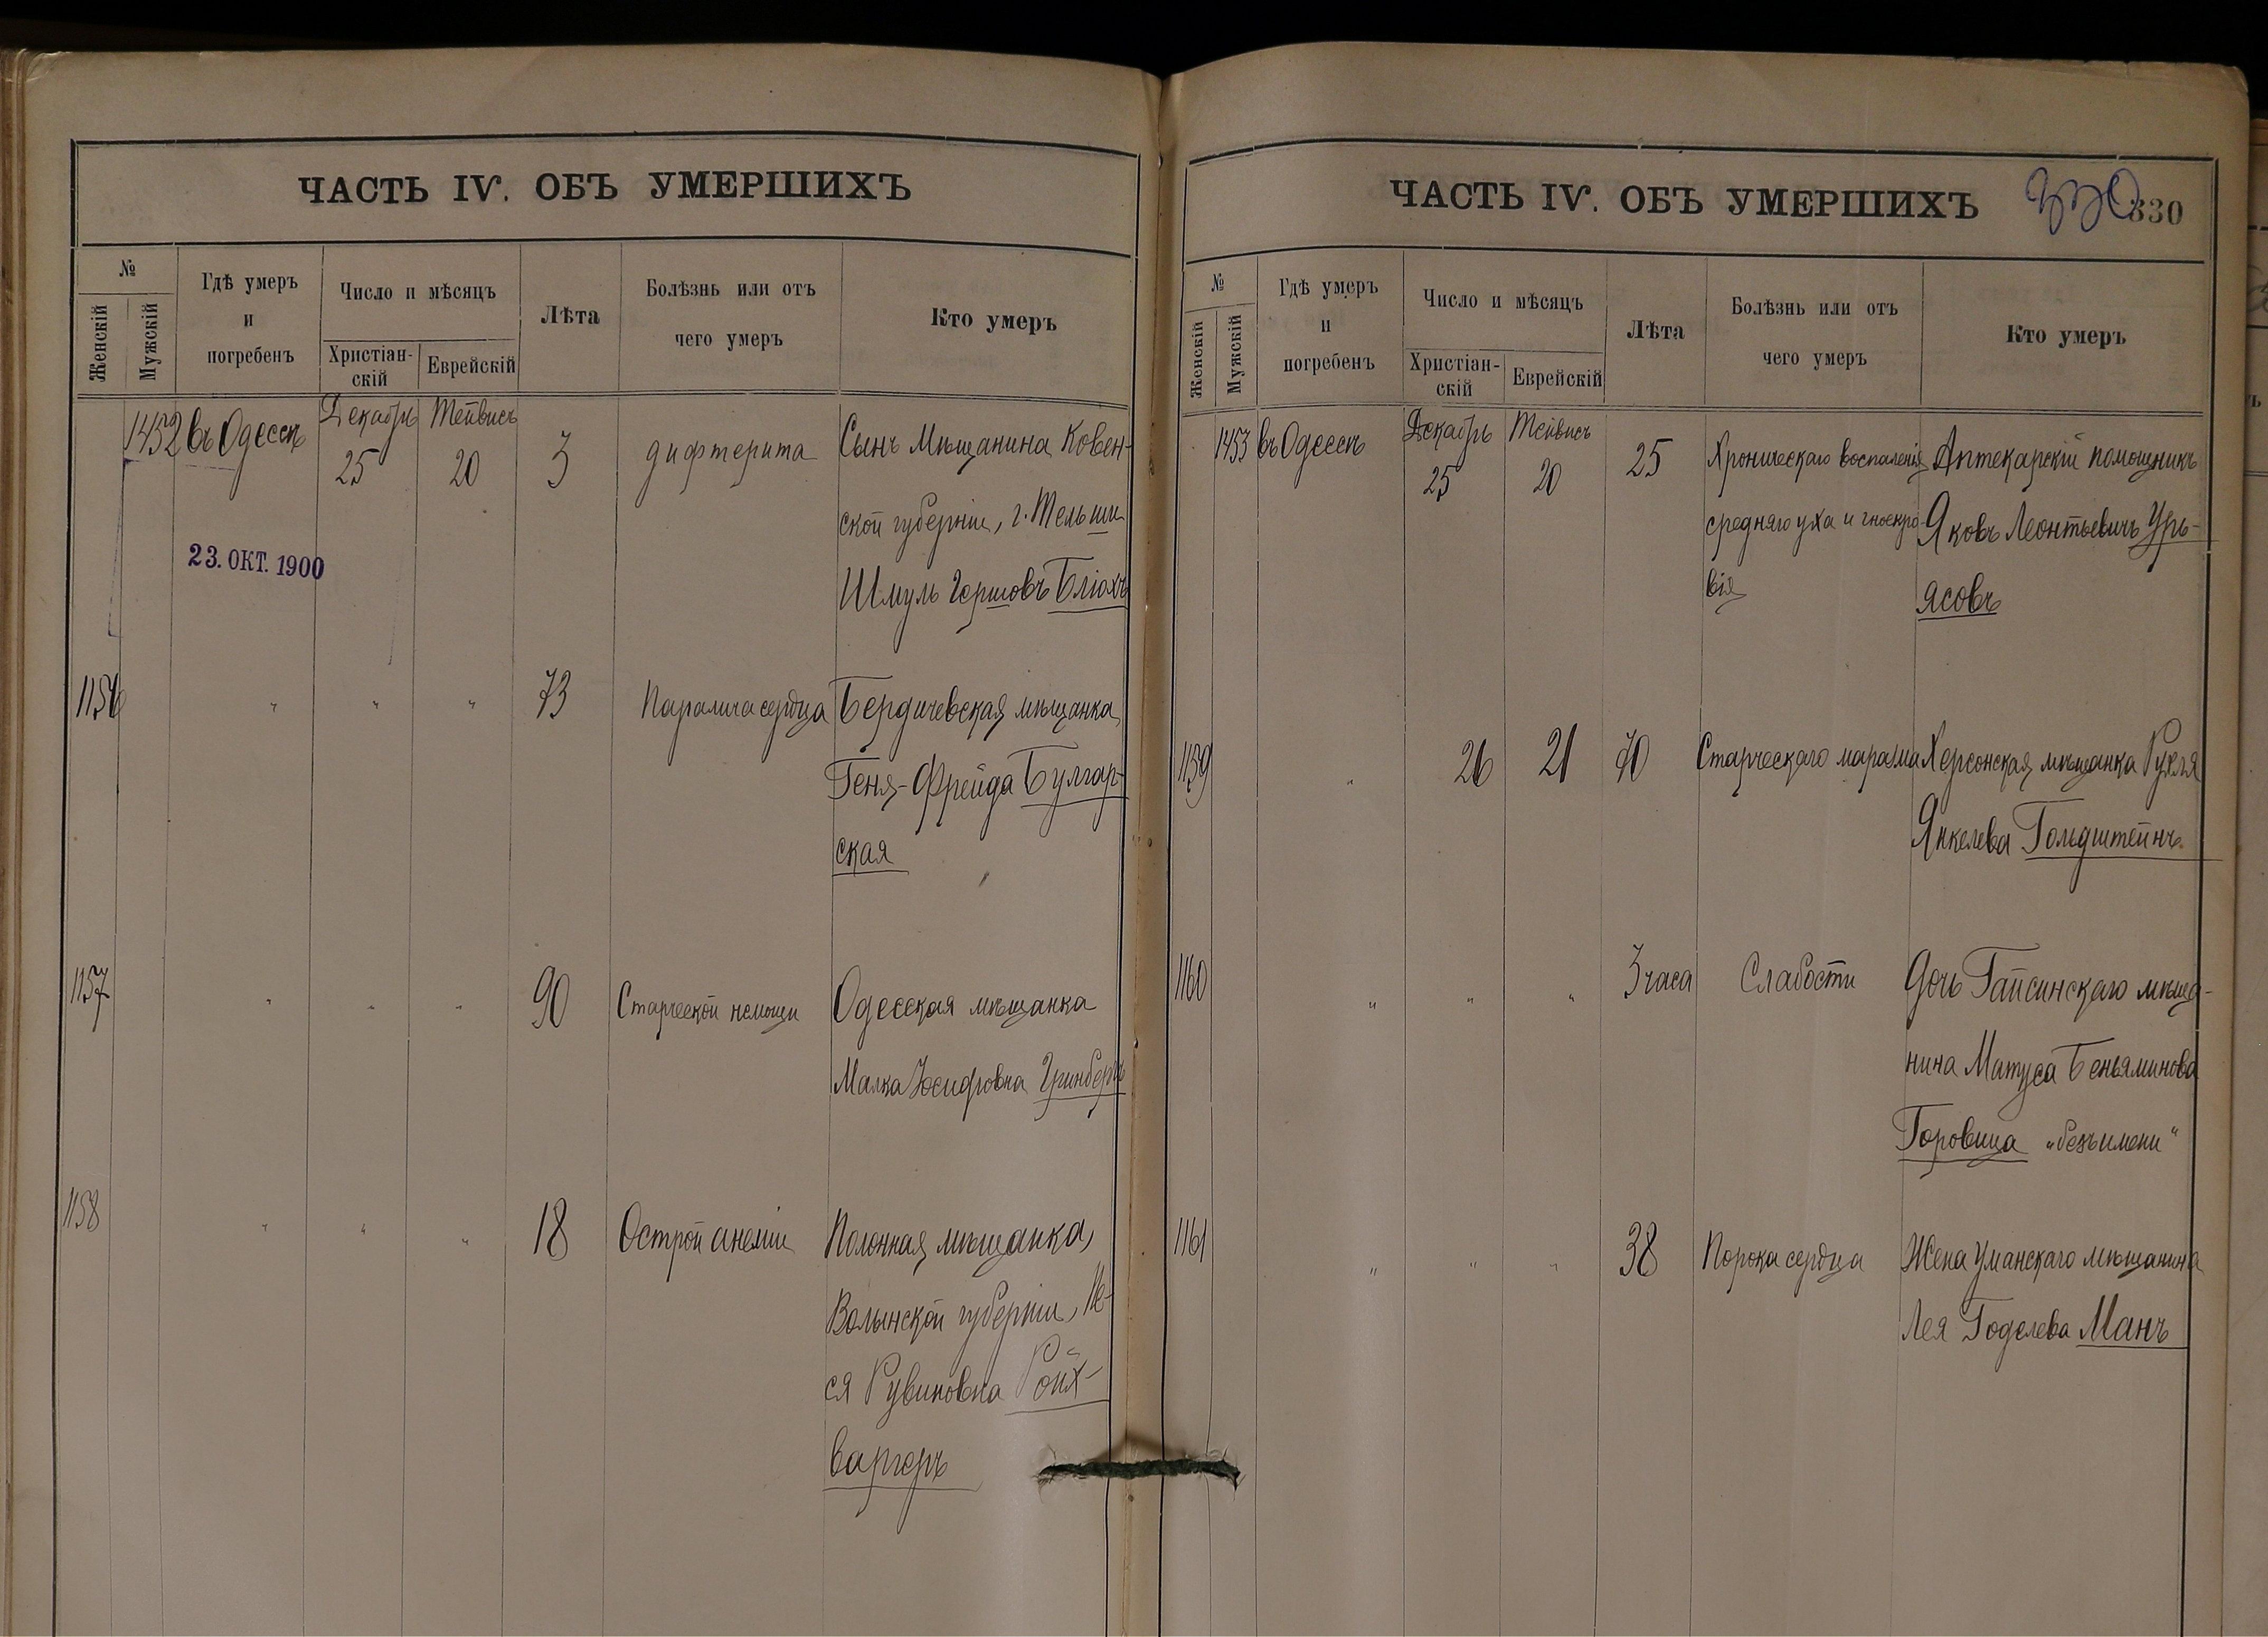 ЧАСТЬ IV. ОБЪ УМЕРШИХЪ
№
Женскій
Мужскій
Гдѣ умеръ
и
погребенъ
Число и мѣсяцъ
Христіан-
скій
Еврейскій
Лѣта
Болѣзнь или отъ
чего умеръ
Кто умеръ
1452 въ Одессѣ Декабрь 25 Тейвисъ 20 3 дифтерита Сынъ Мѣщанина Ковен-
ской губерніи, г. Тельши
23. ОКТ. 1900
Шмуль Гершовъ Бліохъ
1156 " " " 73 Паралича сердца Бердичевская мѣщанка
Геня-Фрейда Булгар-
ская
1157 " " " 90 Старческой немощи Одесская мѣщанка
Малка Іосифовна Гринбергъ
1158 " " " 18 Острой анеміи Полонная мѣщанка,
Волынской губерніи, Пе-
ся Рувиновна Ройх-
варгеръ
ЧАСТЬ IV. ОБЪ УМЕРШИХЪ
330
330
№
Женскій
Мужскій
Гдѣ умеръ
и
погребенъ
Число и мѣсяцъ
Христіан-
скій
Еврейскій
Лѣта
Болѣзнь или отъ
чего умеръ
Кто умеръ
1453 въ Одессѣ Декабрь 25 Тейвисъ 20 25 Хроническаго воспаленія Аптекарскій помощникъ
средняго уха и гноекро- Яковъ Леонтьевичъ Урь-
вія ясовъ
1159 " 26 21 70 Старческаго маразма Херсонская мѣщанка Рухля
Янкелева Гольдштейнъ
1160 " " " 3 часа Слабости Дочь Гайсинскаго мѣща-
нина Матуса Беньяминова
Горовица „безъ имени“
1161 " " " 38 Порока сердца Жена Уманскаго мѣщанина
Лея Годелева Манъ